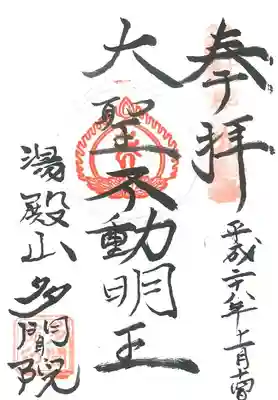 奉拝
平成年十一月
大聖不動明王
湯殿山多聞院